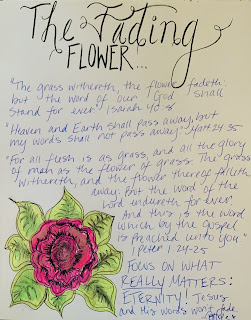 The Fading
FLOWER...
"The grass withereth, the flower fadeth:
but the word of our God shall
stand for ever." Isaiah 40:8
"Heaven and Earth shall pass away, but
my words shall not pass away." Matt 24:35
"For all flesh is as grass, and all the glory
of man as the flower of grass. The grass
withereth, and the flower thereof falleth
away: But the word of the
Lord endureth for ever.
And this is the word
which by the gospel
is preached unto you"
1 Peter 1:24-25
FOCUS ON WHAT
REALLY MATTERS:
ETERNITY! Jesus
and His words won't fade